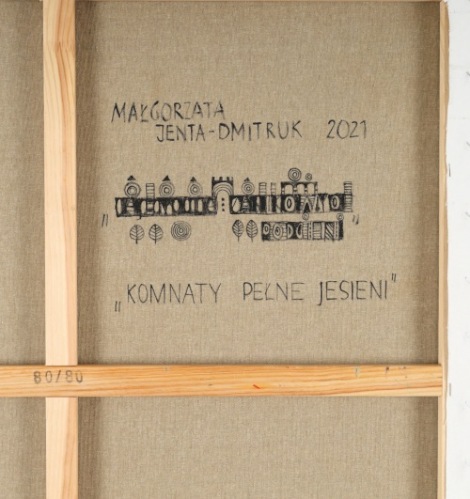 MAŁGORZATA
JENTA-DMITRUK 2021
„KOMNATY PEŁNE JESIENI"
80/80